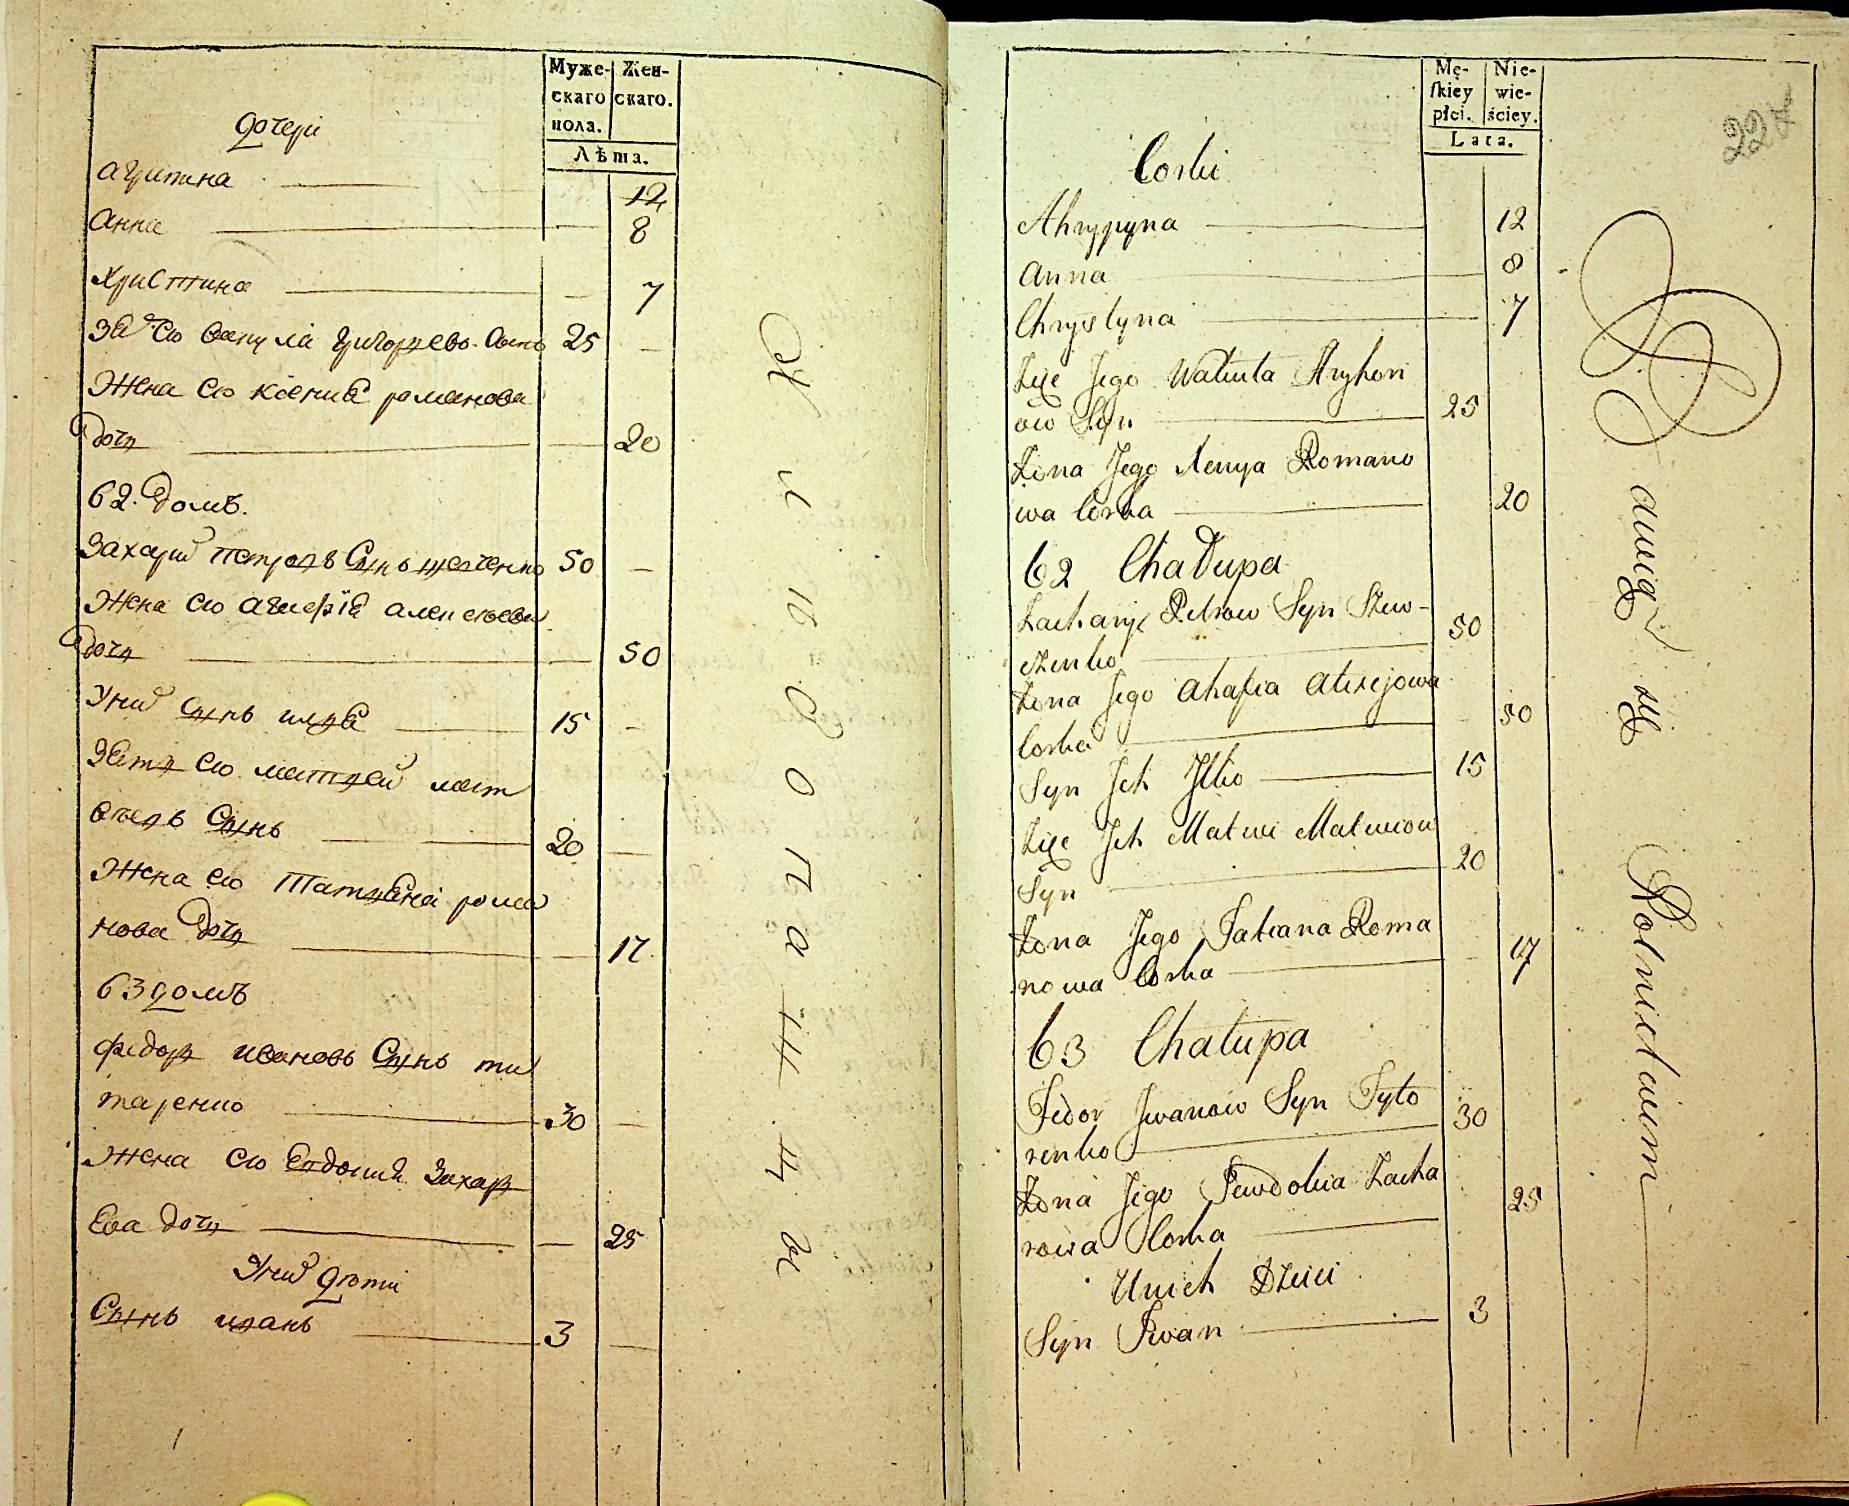 Муже-
скаго
пола.
Жен-
скаго.
Лѣта.
дочери
агрипина 12
анна 8
Христина 7
Зять его вакула григорьевъ Сынъ 25
Жена его ксения романова
дочь 20
62. домъ.
Захарий петровъ Сынъ шевченко 50
Жена его агафия алексеева
дочь 50
У них сынъ илья 15
Зять его матвей мат
веевъ Сынъ 20
Жена его Татьяна рома
нова дочь 17
63 домъ
федоръ ивановъ Сынъ ти
таренко 30
Жена его Евдокия Захаръ
Ева дочь 25
У них дети
Сынъ иванъ 3
Mę-
skiey
płci.
Nie-
wie-
ściey.
Lata.
Corki
Ahrypyna 12
Anna 8
Chrystyna 7
Zięc Jego Wakuła Hryhori
ow Syn 25
Żona Jego Xenya Romano
wa Corka 20
62 Chałupa
Zacharyi Petrow Syn Szew-
czenko 50
Żona Jego Ahafia Alexejowa
Corka 50
Syn Ich Illko 15
Zięc Ich Matwi Matwiow
Syn 20
Żona Jego Tatiana Roma
nowa Corka 17
63 Chałupa
Fedor Iwanow Syn Tyto
renko 30
Żona Jego Jewdokia Zacha
rowa Corka 25
U nich Dzieci
Syn Iwan 3
Rolnictwem